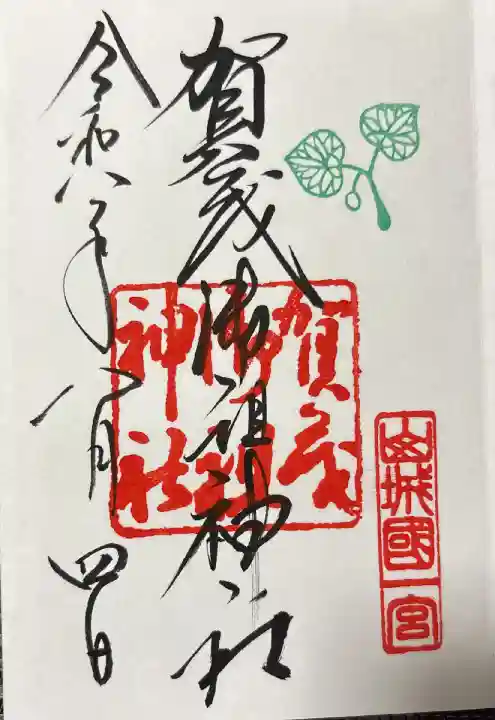 山城國一宮
賀茂御祖神社
賀茂御祖神社
令和八年八月四日